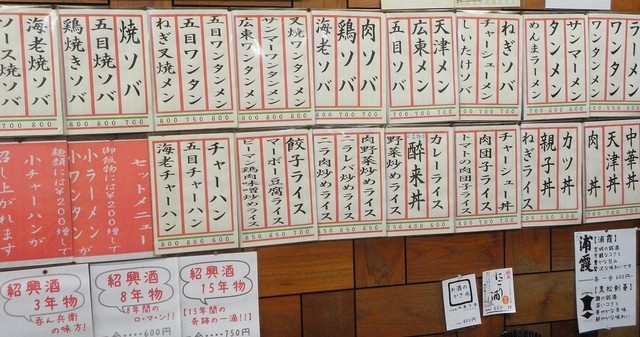 ラ
ワンタン
ワンタンメン
サンマーメン
タンメン
めんまラーメン
ねぎソバ
チャーシューメン
しいたけソバ
天津メン
広東メン
五目ソバ
肉ソバ
鶏ソバ
海老ソバ
叉焼ワンタンメン
サンマーワンタンメン
広東ワンタンメン
800 800 800
五目ワンタンメン
五目ワンタン
ねぎ叉焼メン
焼ソバ
五目焼ソバ
鶏焼きソバ
海老焼ソバ
ソース焼ソバ
700 800
中華丼
天津丼
肉丼
カツ丼
親子丼
ねぎライス
チャーシュー丼
肉団子ライス
トマトの肉団子ライス
カレーライス
酔来丼
野菜炒めライス
肉野菜炒めライス
ニラレバ炒めライス
ニラ肉炒めライス
餃子ライス
マーボー豆腐ライス
ピーマン鶏肉味噌炒めライス
チャーハン
五目チャーハン
海老チャーハン
800 800 600
セットメニュー
御飯物には￥200増しで
小ラーメンが
小ワンタンが
麺類には￥200増しで
小チャーハンが
召し上がれます
紹興酒
3年物
呑ん兵衛
の味方!
紹興酒
8年物
8年間の
ロ・マン!!
600円
紹興酒
15年物
【15年間の
奇跡の一滴!!】
750円
お酒の
かき酒
にごり酒
浦霞
【浦霞】
宮城の銘酒
【黒松剣菱】
灘の銘酒